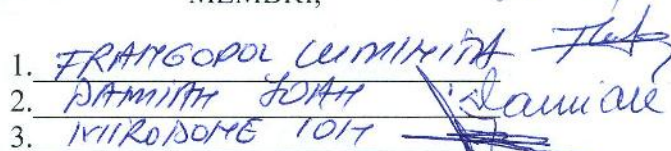 MEMBRI,
1. FRANGOPOL LUMINITA
2. DAMIAN IOAN Damian
3. ION